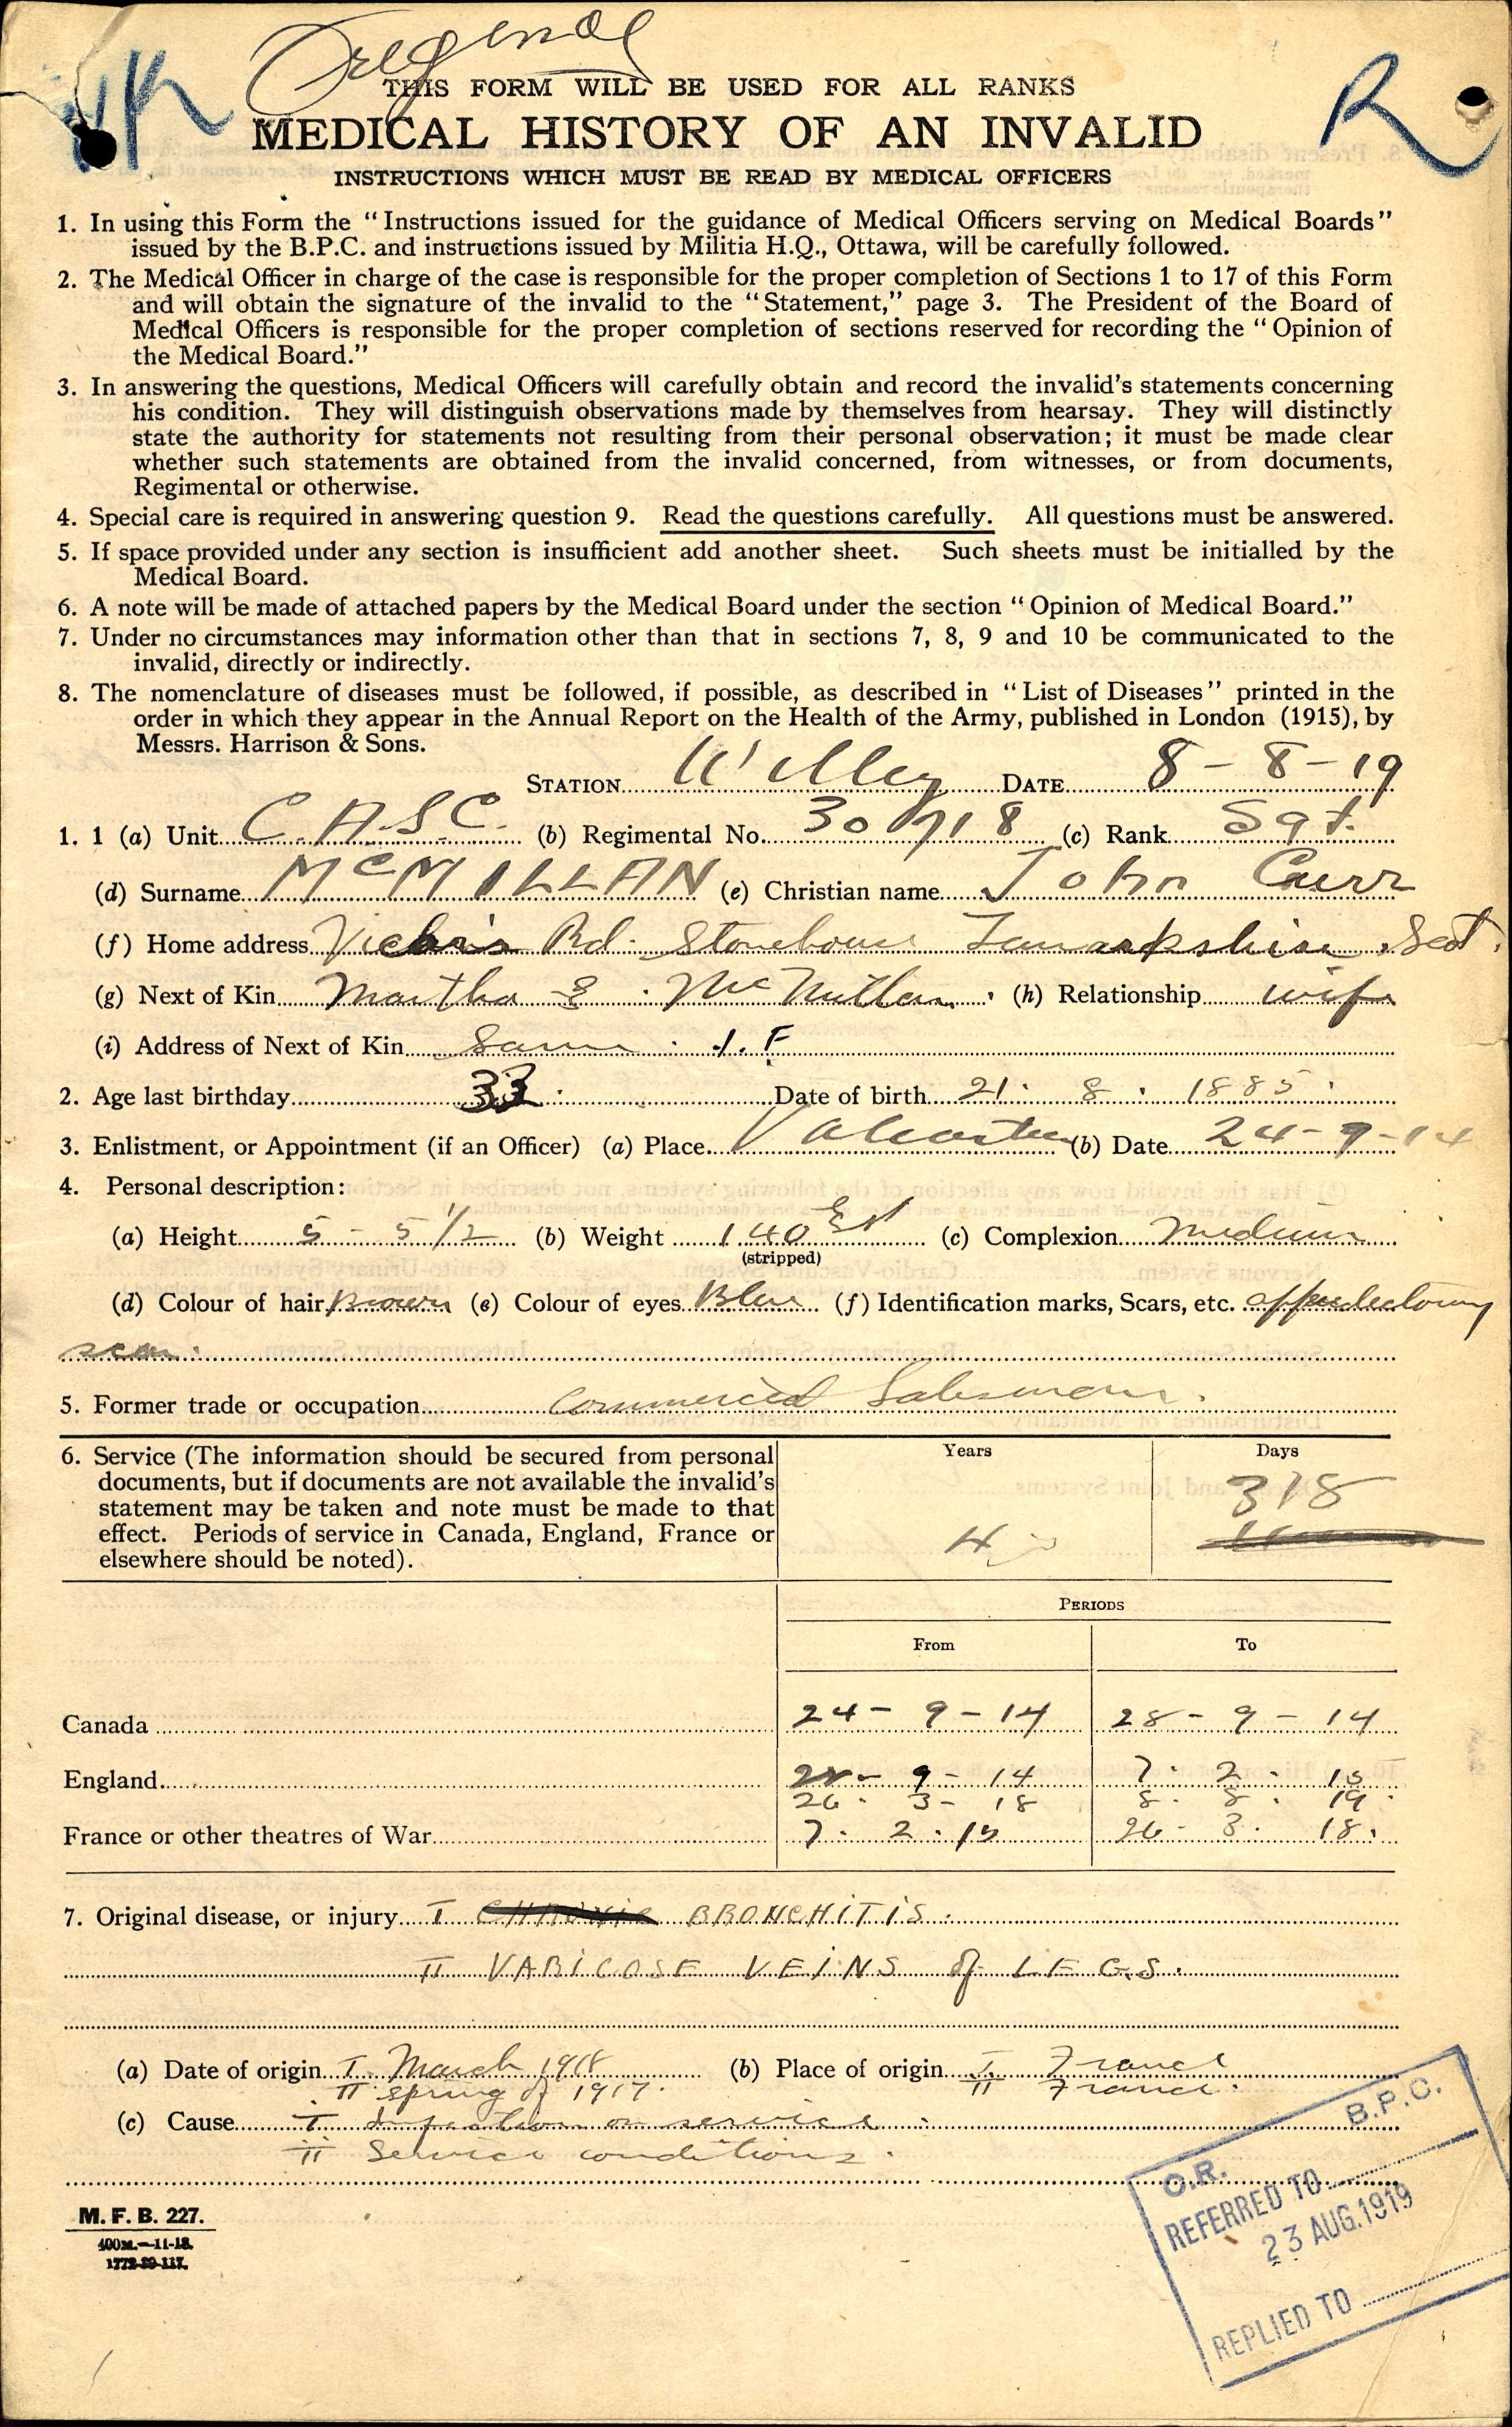 Original
THIS FORM WILL BE USED FOR ALL RANKS
MEDICAL HISTORY OF AN INVALID
R
INSTRUCTIONS WHICH MUST BE READ BY MEDICAL OFFICERS
1. In using this Form the "Instructions issued for the guidance of Medical Officers serving on Medical Boards"
issued by the B.P.C. and instructions issued by Militia H.Q., Ottawa, will be carefully followed.
2. The Medical Officer in charge of the case is responsible for the proper completion of Sections 1 to 17 of this Form
and will obtain the signature of the invalid to the "Statement," page 3. The President of the Board of
Medical Officers is responsible for the proper completion of sections reserved for recording the "Opinion of
the Medical Board."
3. In answering the questions, Medical Officers will carefully obtain and record the invalid's statements concerning
his condition. They will distinguish observations made by themselves from hearsay. They will distinctly
state the authority for statements not resulting from their personal observation; it must be made clear
whether such statements are obtained from the invalid concerned, from witnesses, or from documents,
Regimental or otherwise.
4. Special care is required in answering question 9. Read the questions carefully. All questions must be answered.
5. If space provided under any section is insufficient add another sheet. Such sheets must be initialled by the
Medical Board.
6. A note will be made of attached papers by the Medical Board under the section "Opinion of Medical Board."
7. Under no circumstances may information other than that in sections 7, 8, 9 and 10 be communicated to the
invalid, directly or indirectly.
8. The nomenclature of diseases must be followed, if possible, as described in "List of Diseases" printed in the
order in which they appear in the Annual Report on the Health of the Army, published in London (1915), by
Messrs. Harrison & Sons.
STATION Witley DATE 8-8-19
1. 1 (a) Unit C.A.S.C. (b) Regimental No. 30718 (c) Rank Sgt.
(d) Surname McMILLAN (e) Christian name John Carr
(f) Home address Rd. Stonehouse Lanarkshire Scot.
(g) Next of Kin Martha E. McMillan (h) Relationship wife
(i) Address of Next of Kin Same 1. F
2. Age last birthday 33. Date of birth 21. 8. 1885.
3. Enlistment, or Appointment (if an Officer) (a) Place Valcartier (b) Date 24-9-14
4. Personal description:
(a) Height 5-5 1/2 (b) Weight 140 Est (c) Complexion Medium
(stripped)
(d) Colour of hair Brown (e) Colour of eyes Blue (f) Identification marks, Scars, etc. appendectomy
scar.
5. Former trade or occupation Commercial Salesman.
6. Service (The information should be secured from personal
documents, but if documents are not available the invalid's
statement may be taken and note must be made to that
effect. Periods of service in Canada, England, France or
elsewhere should be noted).
Years Days
4 318
PERIODS
From To
Canada 24-9-14 28-9-14
England 28-9-14 7. 2. 15
26. 3-18 8. 8. 19.
France or other theatres of War 7. 2. 15 26. 3. 18.
7. Original disease, or injury I CHRONIC BRONCHITIS.
II VARICOSE VEINS of LEGS.
(a) Date of origin I March 1918 (b) Place of origin I France
II Spring of 1917. II France.
(c) Cause I Infection on service.
II Service conditions.
M. F. B. 227.
400m.—11-18.
1772-39-117.
O.R. B.P.C.
REFERRED TO
23 AUG. 1919
REPLIED TO